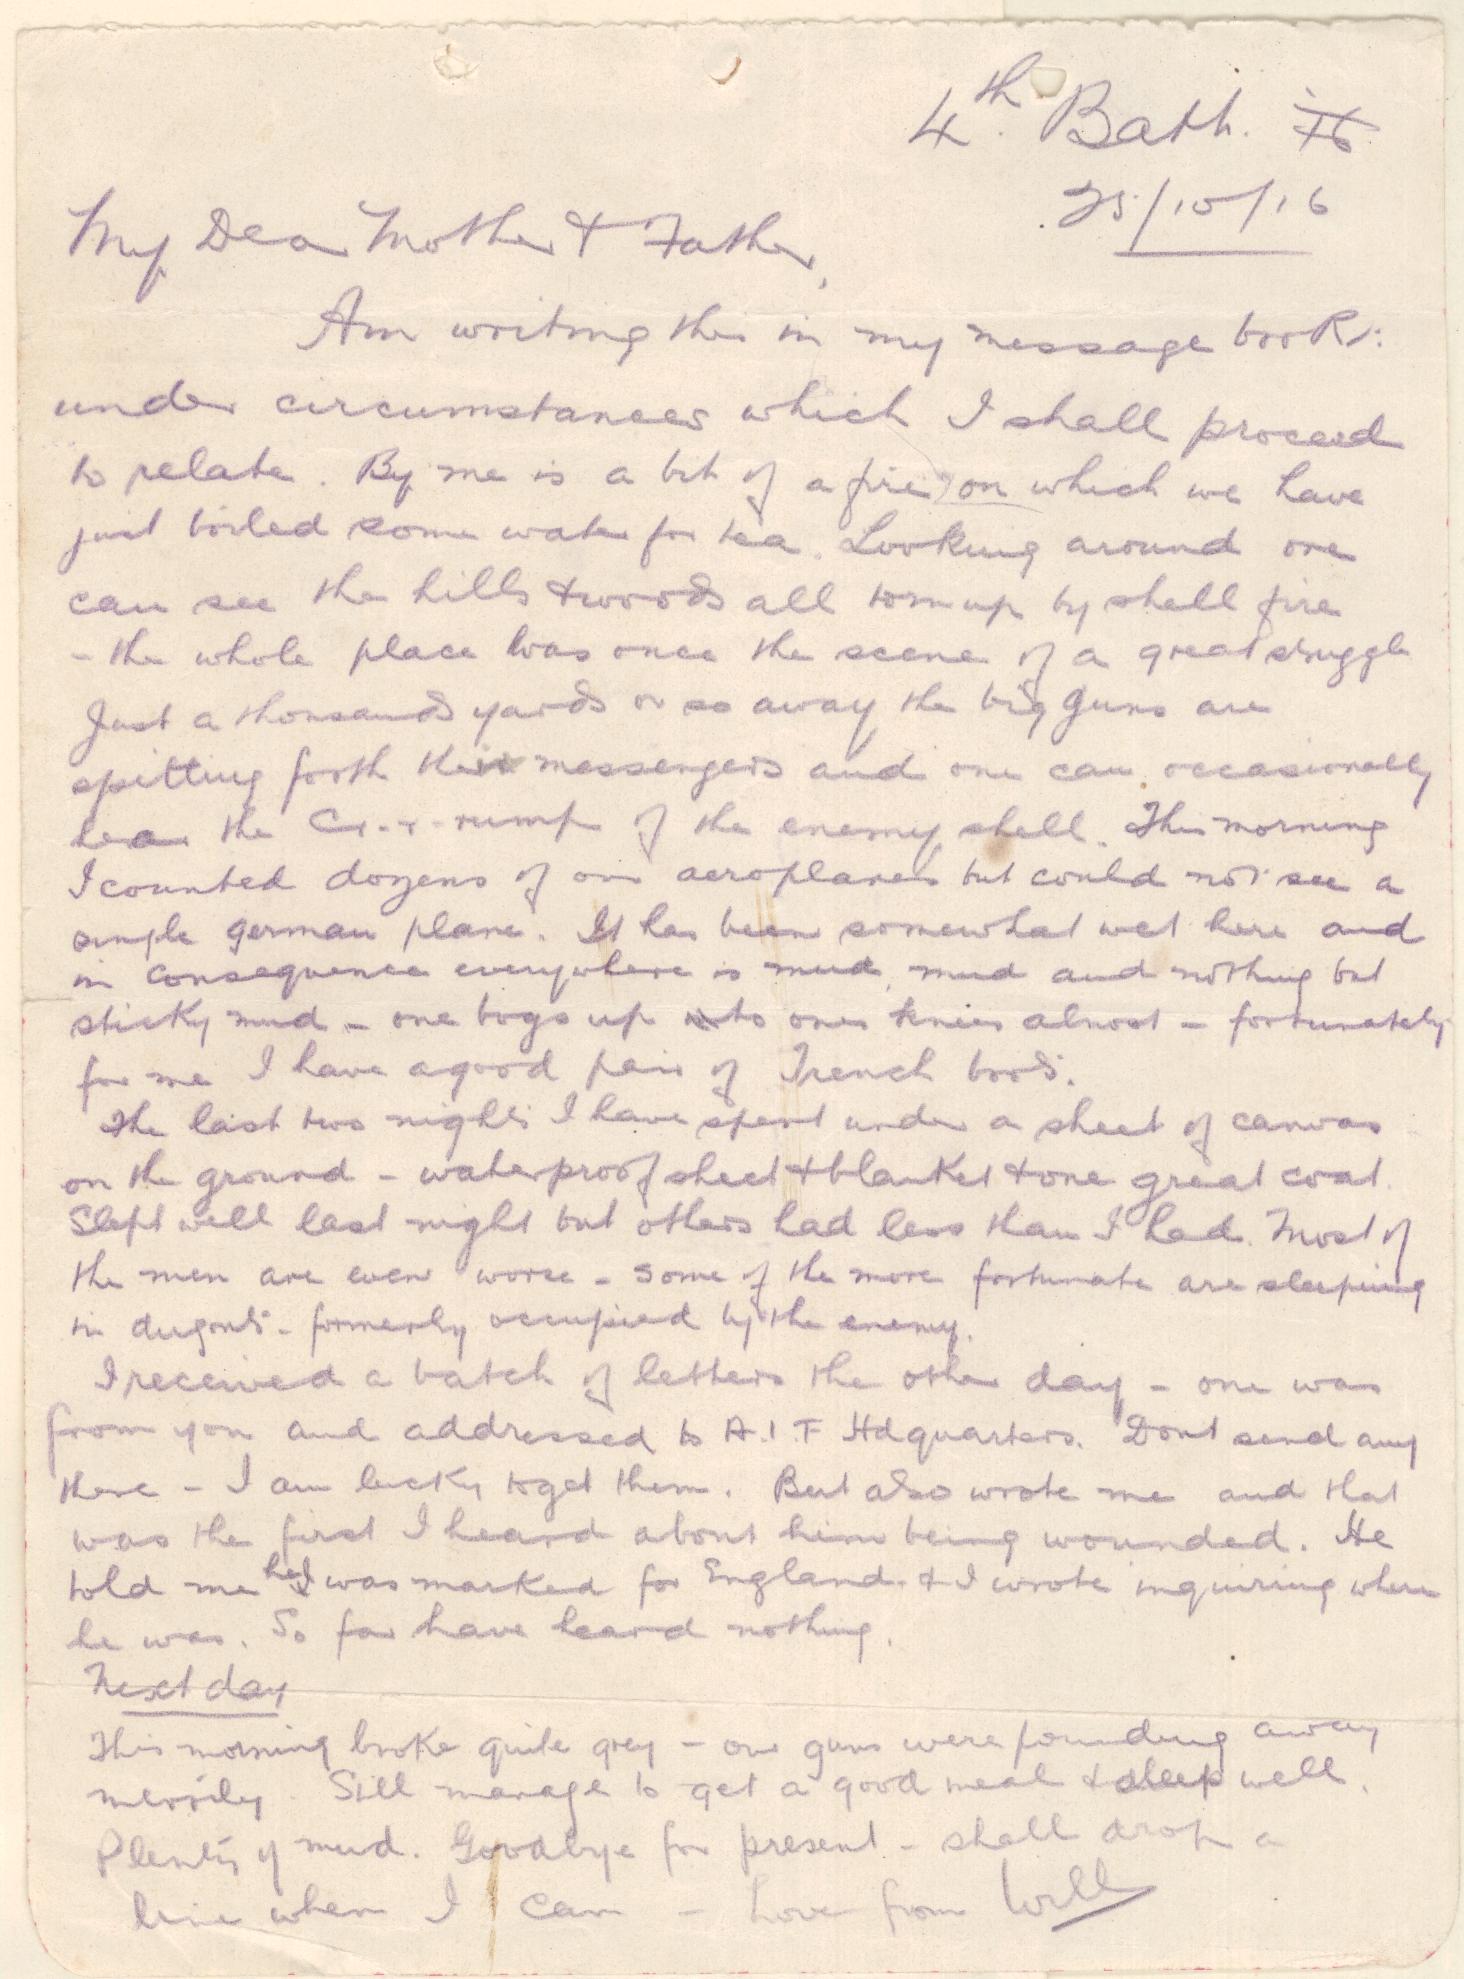 4th. Battn.
25/10/16
My Dear Mother & Father,
Am writing this in my message book:
under circumstances which I shall proceed
to relate. By me is a bit of a fire on which we have
just boiled some water for tea. Looking around one
can see the hills & woods all torn up by shell fire
- the whole place was once the scene of a great struggle
Just a thousand yards or so away the big guns are
spitting forth their messengers and one can occasionally
hear the Cr-r-rump of the enemy shell. This morning
I counted dozens of our aeroplanes but could not see a
single german plane. It has been somewhat wet here and
in consequence everywhere is mud, mud and nothing but
sticky mud - one bogs up to ones knees almost - fortunately
for me I have a good pair of Trench boots.
The last two nights I have spent under a sheet of canvas
on the ground - waterproof sheet & blanket & one great coat.
Slept well last night but others had less than I had. Most of
the men are even worse - some of the more fortunate are sleeping
in dugouts - formerly occupied by the enemy.
I received a batch of letters the other day - one was
from you and addressed to A.I.F Hdquarters. Dont send any
there - I am lucky to get them. Bert also wrote me and that
was the first I heard about him being wounded. He
told me he was marked for England & I wrote inquiring where
he was. So far have heard nothing.
Next day
This morning broke quite grey - our guns were pounding away
merrily. Still manage to get a good meal & sleep well.
Plenty of mud. Goodbye for present - shall drop a
line when I can - Love from Will